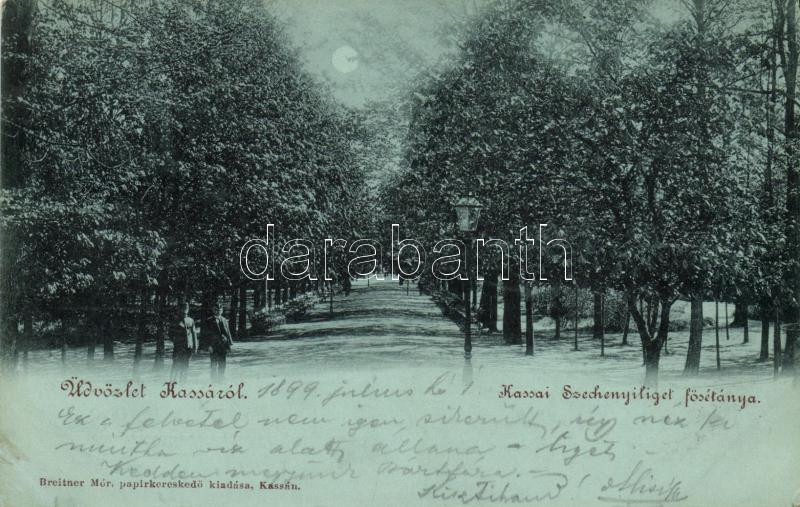 darabanth
Üdvözlet Kassáról. 1899. július hó 1
Kassai Szechenyiliget fösétánya.
Ez a felvétel nem igen sikerült, úgy néz ki
mintha víz alatt állana – liget
Kedden megyünk Bártfára. –
Breitner Mór. papirkereskedö kiadása, Kassán.